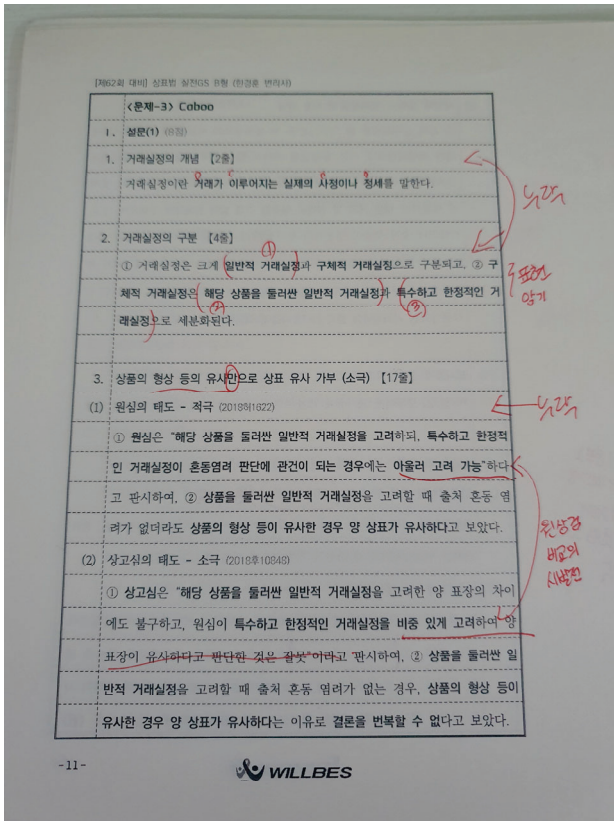 [제62회 대비] 상표법 실전GS B형 (한경훈 변리사)
<문제-3> Caboo
Ⅰ. 설문(1) (8점)
1. 거래실정의 개념 【2줄】
거래실정이란 거래가 이루어지는 실제의 사정이나 정세를 말한다.
누락
2. 거래실정의 구분 【4줄】
①
① 거래실정은 크게 일반적 거래실정과 구체적 거래실정으로 구분되고, ② 구
표현
체적 거래실정은 해당 상품을 둘러싼 일반적 거래실정과 특수하고 한정적인 거
암기
② ③
래실정으로 세분화된다.
3. 상품의 형상 등의 유사만으로 상표 유사 가부 (소극) 【17줄】
(1) 원심의 태도 - 적극 (2018허1622)
누락
① 원심은 "해당 상품을 둘러싼 일반적 거래실정을 고려하되, 특수하고 한정적
인 거래실정이 혼동염려 판단에 관건이 되는 경우에는 아울러 고려 가능"하다
고 판시하여, ② 상품을 둘러싼 일반적 거래실정을 고려할 때 출처 혼동 염
려가 없더라도 상품의 형상 등이 유사한 경우 양 상표가 유사하다고 보았다.
(2) 상고심의 태도 - 소극 (2018후10848)
비교의
① 상고심은 "해당 상품을 둘러싼 일반적 거래실정을 고려한 양 표장의 차이
에도 불구하고, 원심이 특수하고 한정적인 거래실정을 비중 있게 고려하여 양
표장이 유사하다고 판단한 것은 잘못"이라고 판시하여, ② 상품을 둘러싼 일
반적 거래실정을 고려할 때 출처 혼동 염려가 없는 경우, 상품의 형상 등이
유사한 경우 양 상표가 유사하다는 이유로 결론을 번복할 수 없다고 보았다.
-11-
WILLBES